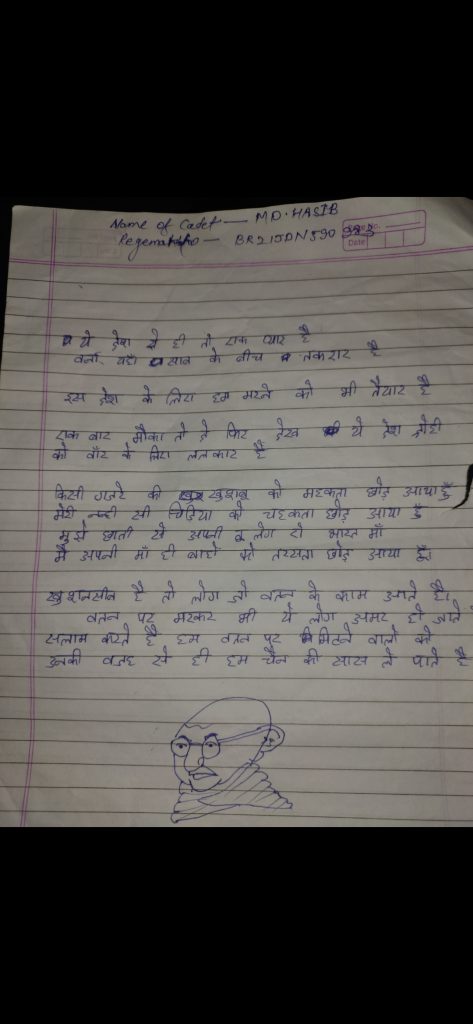 Name of Cadet — MD. HASIB
Regemantno — BR21JDN590983
Date
ये देश से ही तो एक प्यार है
वर्ना यहाँ सांब के बीच तकरार है
इस देश के लिए हम मरने को भी तैयार है
एक बार मौका तो दे फिर देख ये देश द्रोही
को वॉर के लिए ललकार है
किसी गजरे की खुशबू को महकता छोड़ आया हूँ
मेरी नन्ही सी चिड़िया को चहकता छोड़ आया हूँ
मुझे छाती से अपनी लेग लो भारत माँ
मैं अपनी माँ ही बाहों को तरसता छोड़ आया हूँ।
खुशनसीब है तो लोग जो वतन के काम आते है।
वतन पर मरकर भी ये लोग अमर हो जाते
सलाम करते है हम वतन पर मिटने वालो को
उनकी वजह से ही हम चैन की सास ले पाते है